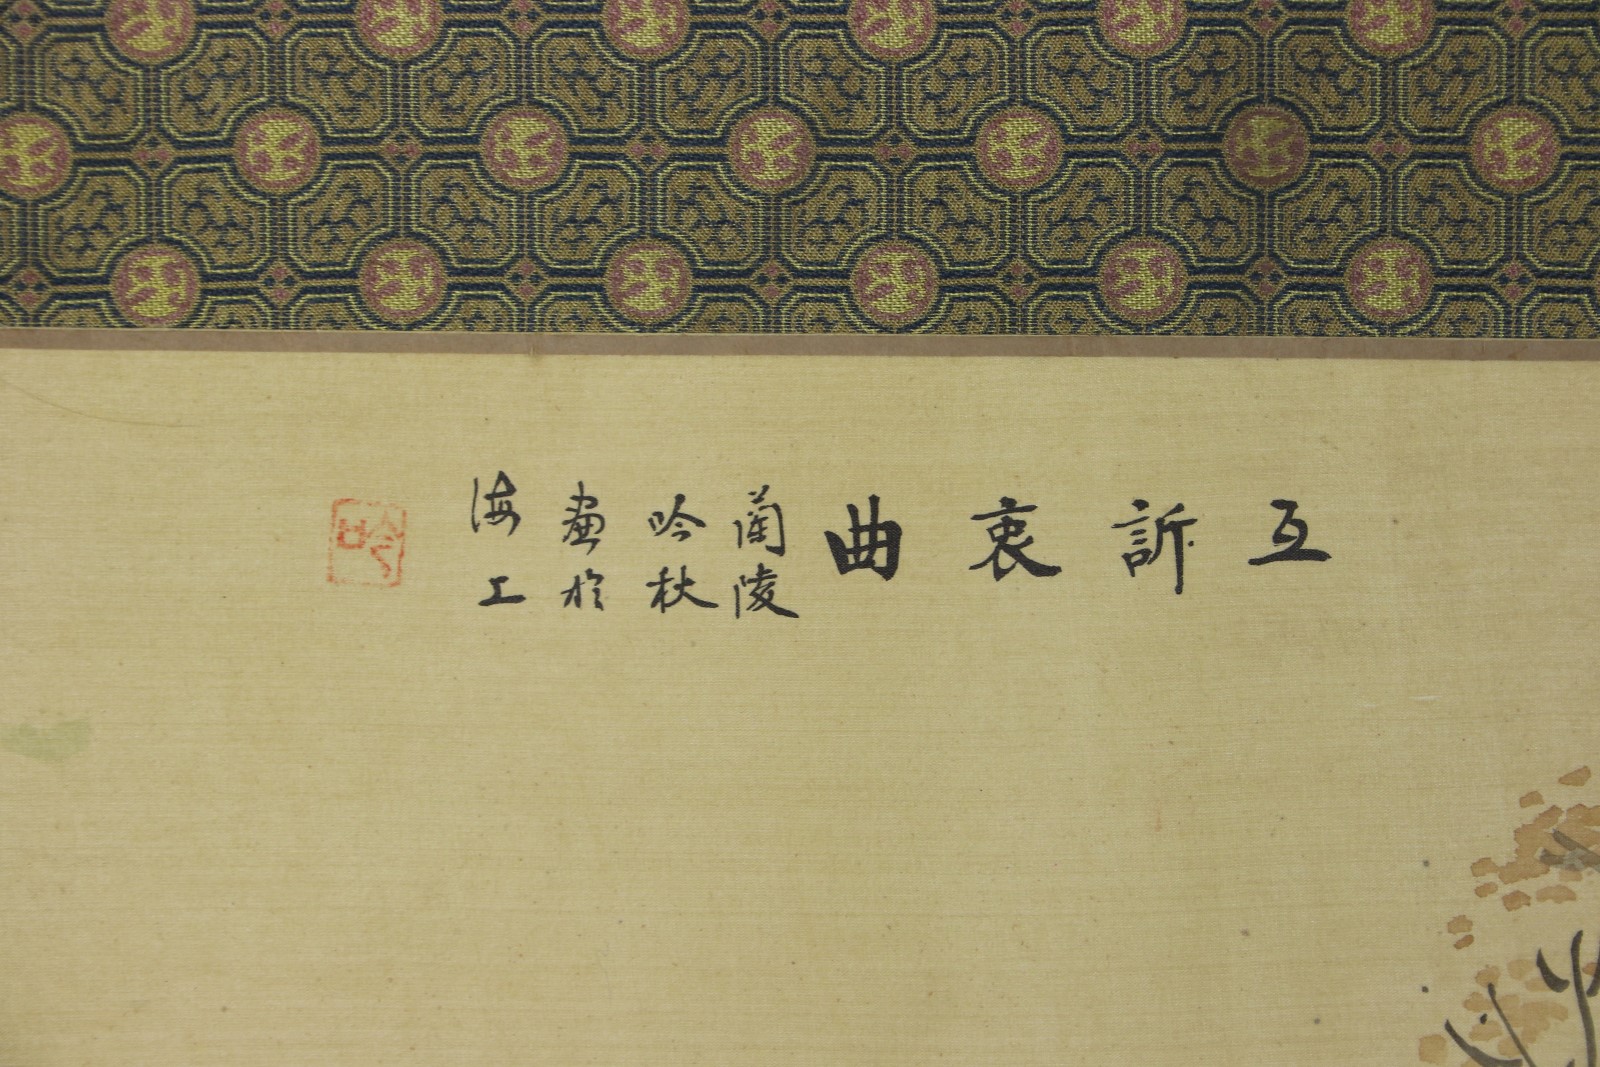 互訴衷曲
蘭陵
吟秋
畫於
海上
吟